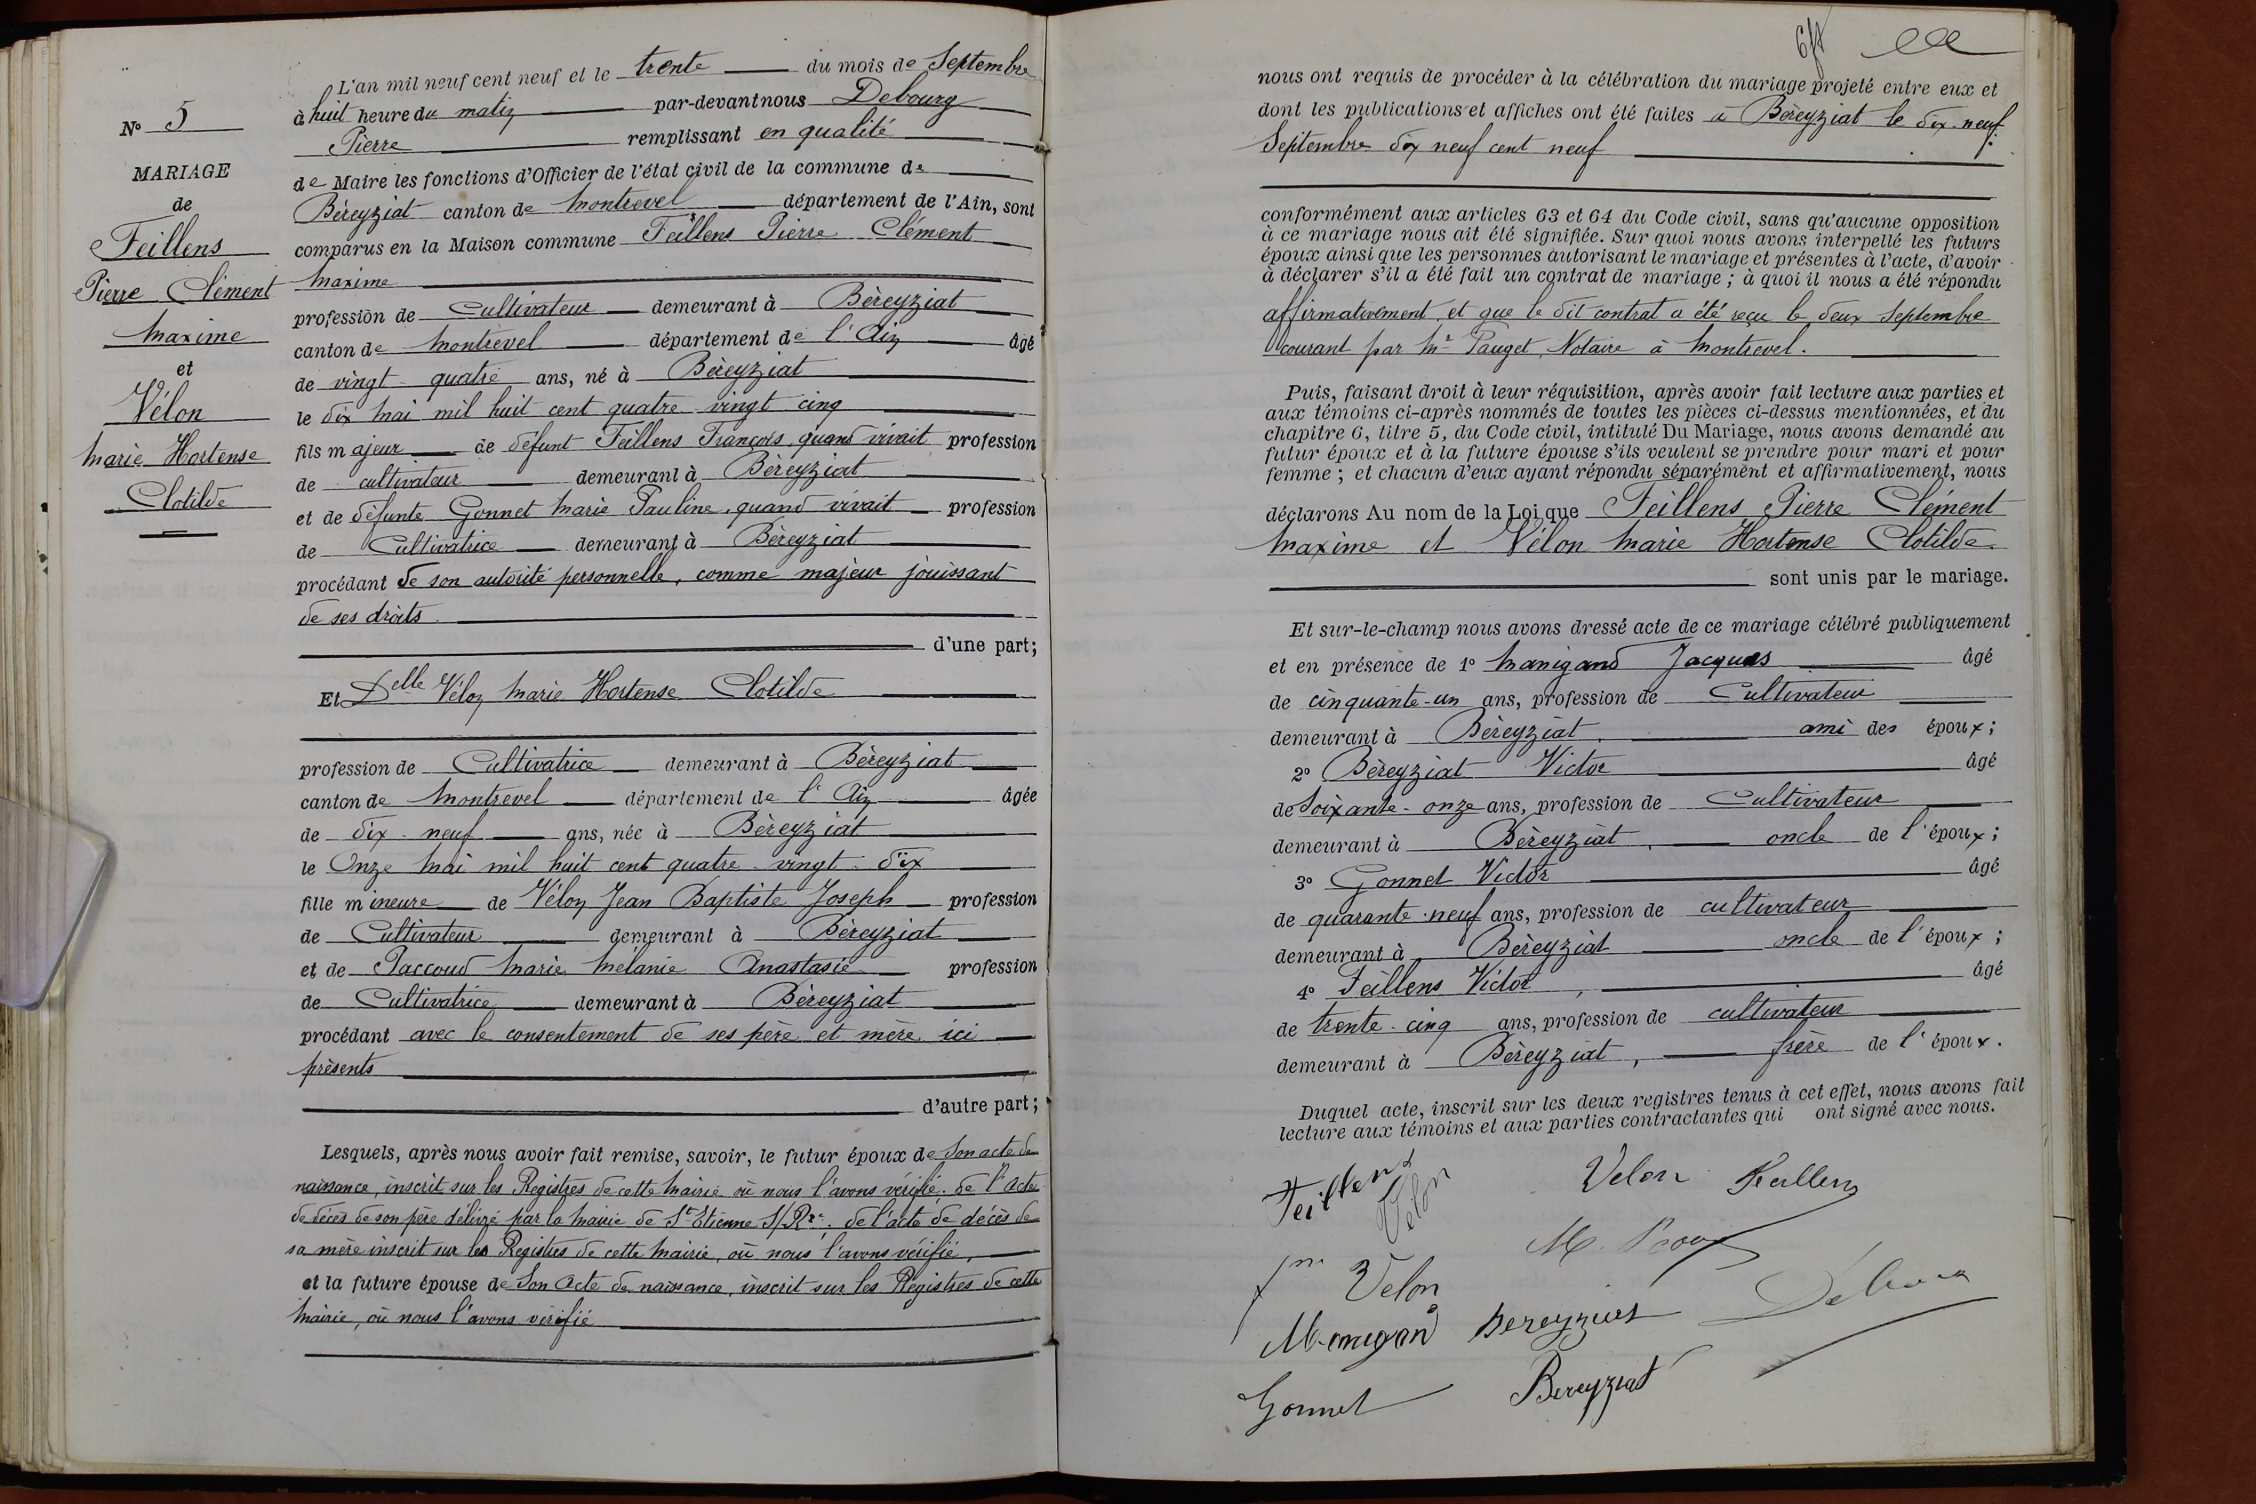 N° 5
MARIAGE
de
Feillens
Pierre Clément
Maxime
et
Vélon
Marie Hortense
Clotilde
L'an mil neuf cent neuf et le trente du mois de Septembre
à huit heure du matin par-devant nous Debourg
Pierre remplissant en qualité
de Maire les fonctions d'Officier de l'état civil de la commune de
Béreyziat canton de Montrevel département de l'Ain, sont
comparus en la Maison commune Feillens Pierre Clément
Maxime
profession de Cultivateur demeurant à Béreyziat
canton de Montrevel département de l'Ain âgé
de vingt-quatre ans, né à Béreyziat
le dix Mai mil huit cent quatre-vingt cinq
fils majeur de défunt Feillens François, quand vivait profession
de cultivateur demeurant à Béreyziat
et de défunte Gonnet Marie Pauline, quand vivait profession
de Cultivatrice demeurant à Béreyziat
procédant de son autorité personnelle, comme majeur jouissant
de ses droits
d'une part;
Et Delle Vélon Marie Hortense Clotilde
profession de Cultivatrice demeurant à Béreyziat
canton de Montrevel département de l'Ain âgée
de dix-neuf ans, née à Béreyziat
le Onze Mai mil huit cent quatre-vingt-dix
fille mineure de Vélon Jean Baptiste Joseph profession
de Cultivateur demeurant à Béreyziat
et de Paccoud Marie Mélanie Anastasie profession
de Cultivatrice demeurant à Béreyziat
procédant avec le consentement de ses père et mère ici
présents
d'autre part;
Lesquels, après nous avoir fait remise, savoir, le futur époux de Son acte de
naissance, inscrit sur les Registres de cette Mairie où nous l'avons vérifié, de l'acte
de décès de son père délivré par la Mairie de St Etienne S/Rze, de l'acte de décès de
sa mère inscrit sur les Registres de cette Mairie, où nous l'avons vérifié,
et la future épouse de Son Acte de naissance, inscrit sur les Registres de cette
Mairie, où nous l'avons vérifié
nous ont requis de procéder à la célébration du mariage projeté entre eux et
dont les publications et affiches ont été faites à Béreyziat le dix-neuf
Septembre dix neuf cent neuf
conformément aux articles 63 et 64 du Code civil, sans qu'aucune opposition
à ce mariage nous ait été signifiée. Sur quoi nous avons interpellé les futurs
époux ainsi que les personnes autorisant le mariage et présentes à l'acte, d'avoir
à déclarer s'il a été fait un contrat de mariage; à quoi il nous a été répondu
affirmativement et que le dit contrat a été reçu le deux Septembre
courant par Mr Pauget, Notaire à Montrevel.
Puis, faisant droit à leur réquisition, après avoir fait lecture aux parties et
aux témoins ci-après nommés de toutes les pièces ci-dessus mentionnées, et du
chapitre 6, titre 5, du Code civil, intitulé Du Mariage, nous avons demandé au
futur époux et à la future épouse s'ils veulent se prendre pour mari et pour
femme; et chacun d'eux ayant répondu séparément et affirmativement, nous
déclarons Au nom de la Loi que Feillens Pierre Clément
Maxime et Vélon Marie Hortense Clotilde
sont unis par le mariage.
Et sur-le-champ nous avons dressé acte de ce mariage célébré publiquement
et en présence de 1° Manigand Jacques âgé
de cinquante-un ans, profession de Cultivateur
demeurant à Béreyziat, ami des époux;
2° Béreyziat Victor âgé
de Soixante-onze ans, profession de Cultivateur
demeurant à Béreyziat, oncle de l'époux;
3° Gonnet Victor âgé
de quarante-neuf ans, profession de cultivateur
demeurant à Béreyziat oncle de l'époux;
4° Feillens Victor, âgé
de trente-cinq ans, profession de cultivateur
demeurant à Béreyziat, frère de l'époux.
Duquel acte, inscrit sur les deux registres tenus à cet effet, nous avons fait
lecture aux témoins et aux parties contractantes qui ont signé avec nous.
Feillens Vélon Velon Feillens
Velon
Manigand Bereyziat
Gonnet Bereyziat